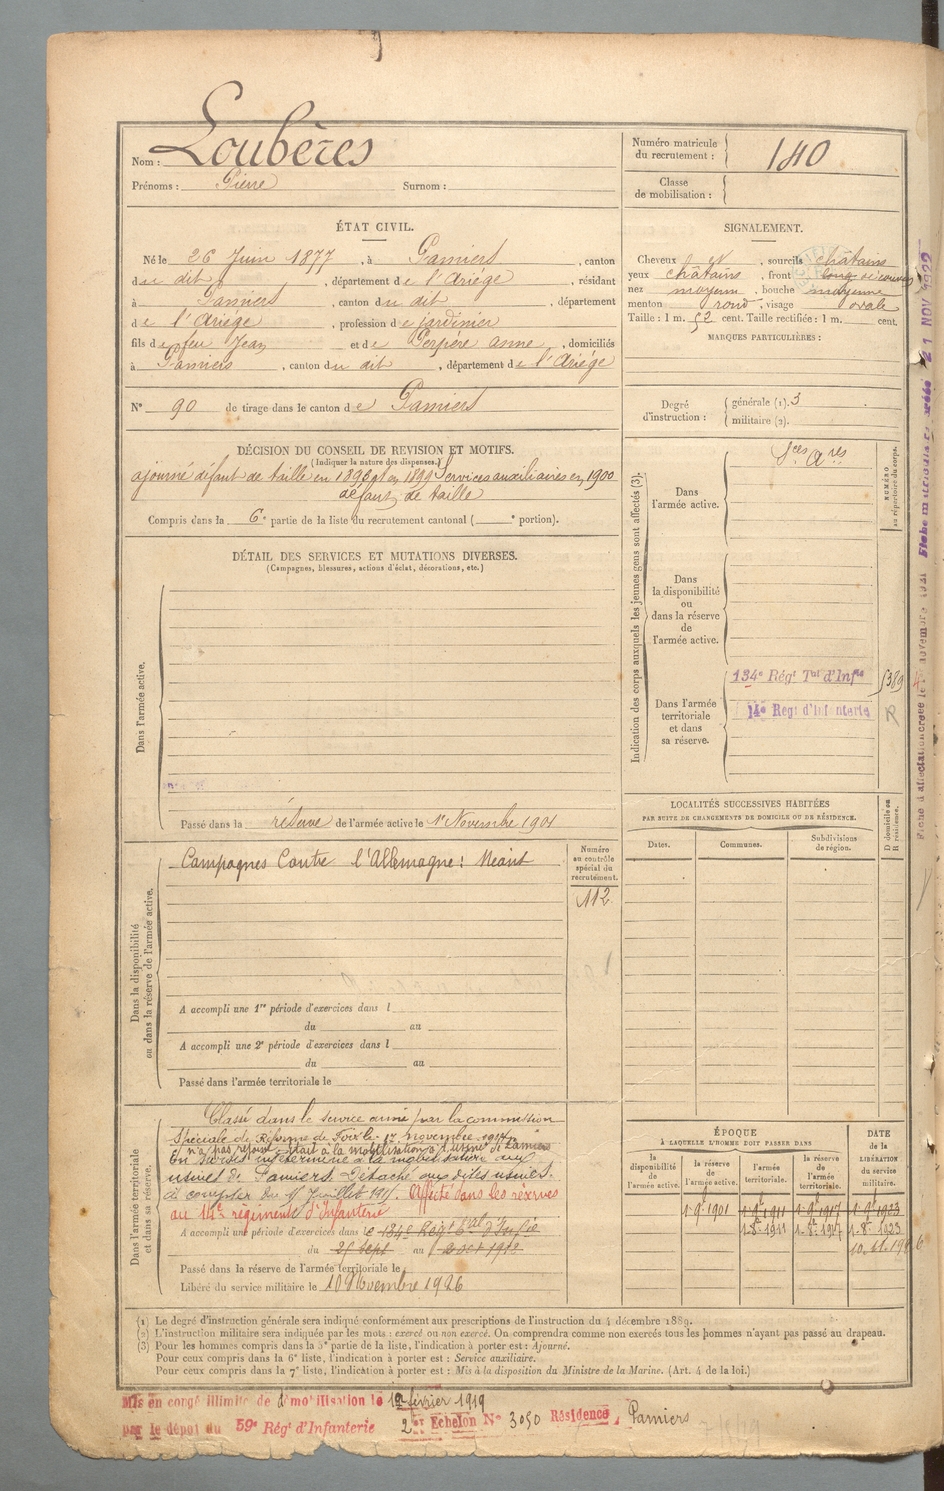 Nom : Loubères
Prénoms : Pierre Surnom :
Numéro matricule du recrutement : 140
Classe de mobilisation :
ÉTAT CIVIL.
Né le 26 Juin 1877, à Pamiers, canton
du dit, département de l'Ariége, résidant
à Pamiers, canton du dit, département
de l'Ariége, profession de jardinier
fils de feu Jean et de Perpère anne, domiciliés
à Pamiers, canton du dit, département de l'Ariége
N° 90 de tirage dans le canton de Pamiers
SIGNALEMENT.
Cheveux et sourcils châtains
yeux châtains, front
nez moyen, bouche moyenne
menton rond, visage ovale
Taille : 1 m. 52 cent. Taille rectifiée : 1 m. cent.
MARQUES PARTICULIÈRES :
Degré d'instruction : générale (1). 3
militaire (2).
DÉCISION DU CONSEIL DE REVISION ET MOTIFS.
(Indiquer la nature des dispenses.)
ajourné défaut de taille en 1898 et en 1899 Services auxiliaires en 1900
défaut de taille
Compris dans la 6e partie de la liste du recrutement cantonal ( e portion).
DÉTAIL DES SERVICES ET MUTATIONS DIVERSES.
(Campagnes, blessures, actions d'éclat, décorations, etc.)
Dans l'armée active.
Passé dans la réserve de l'armée active le 1er Novembre 1901
Indication des corps auxquels les jeunes gens sont affectés (3).
NUMÉRO au répertoire du corps.
Dans l'armée active.
Sces Ares
Dans la disponibilité ou dans la réserve de l'armée active.
Dans l'armée territoriale et dans sa réserve.
134e Régt Tal d'Infie
14e Regt d'Infanterie R
LOCALITÉS SUCCESSIVES HABITÉES
PAR SUITE DE CHANGEMENTS DE DOMICILE OU DE RÉSIDENCE.
Dates. Communes. Subdivisions de région. D domicile ou R résidence.
Dans la disponibilité ou dans la réserve de l'armée active.
Campagnes Contre l'Allemagne : Néant
Numéro au contrôle spécial du recrutement.
112
A accompli une 1re période d'exercices dans l
du au
A accompli une 2e période d'exercices dans l
du au
Passé dans l'armée territoriale le
Dans l'armée territoriale et dans sa réserve.
Classé dans le service armé par la commission
Spéciale de Réforme de Foix le 17 novembre 1914
n'a pas rejoint était à la mobilisation à l'usine de Pamiers
En sursis indéterminé à la mobilisation aux
usines de Pamiers. Détaché aux dites usines.
à compter du 1er Juillet 1917. Affecté dans les réserves
au 14e régiment d'Infanterie
A accompli une période d'exercices dans le 134e Régt Tal d'Inf
du 25 Sept au
Passé dans la réserve de l'armée territoriale le
Libéré du service militaire le 10 Novembre 1926
ÉPOQUE
À LAQUELLE L'HOMME DOIT PASSER DANS
DATE de la LIBÉRATION du service militaire.
la disponibilité de l'armée active. la réserve de l'armée active. l'armée territoriale. la réserve de l'armée territoriale.
1-9-1901 1-9-1911 1-9-1917 1-9-1923
1-8-1911 1-8-1917 1-8-1923
10.11.1926
(1) Le degré d'instruction générale sera indiqué conformément aux prescriptions de l'instruction du 4 décembre 1889.
(2) L'instruction militaire sera indiquée par les mots : exercé ou non exercé. On comprendra comme non exercés tous les hommes n'ayant pas passé au drapeau.
(3) Pour les hommes compris dans la 5e partie de la liste, l'indication à porter est : Ajourné.
Pour ceux compris dans la 6e liste, l'indication à porter est : Service auxiliaire.
Pour ceux compris dans la 7e liste, l'indication à porter est : Mis à la disposition du Ministre de la Marine. (Art. 4 de la loi.)
Mis en congé illimité de démobilisation le 12 février 1919
par le dépôt du 59e Régt d'Infanterie 2e Echelon N° 3050 Résidence, Pamiers